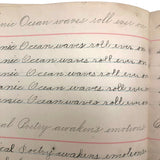 nic Ocean waves roll ever on
nic Ocean waves roll ever on
nic Ocean waves roll ever on
nic Ocean waves roll ever on
nic Ocean waves roll ever on
al Poetry awakens emotions
cal Poetry awakens emotions